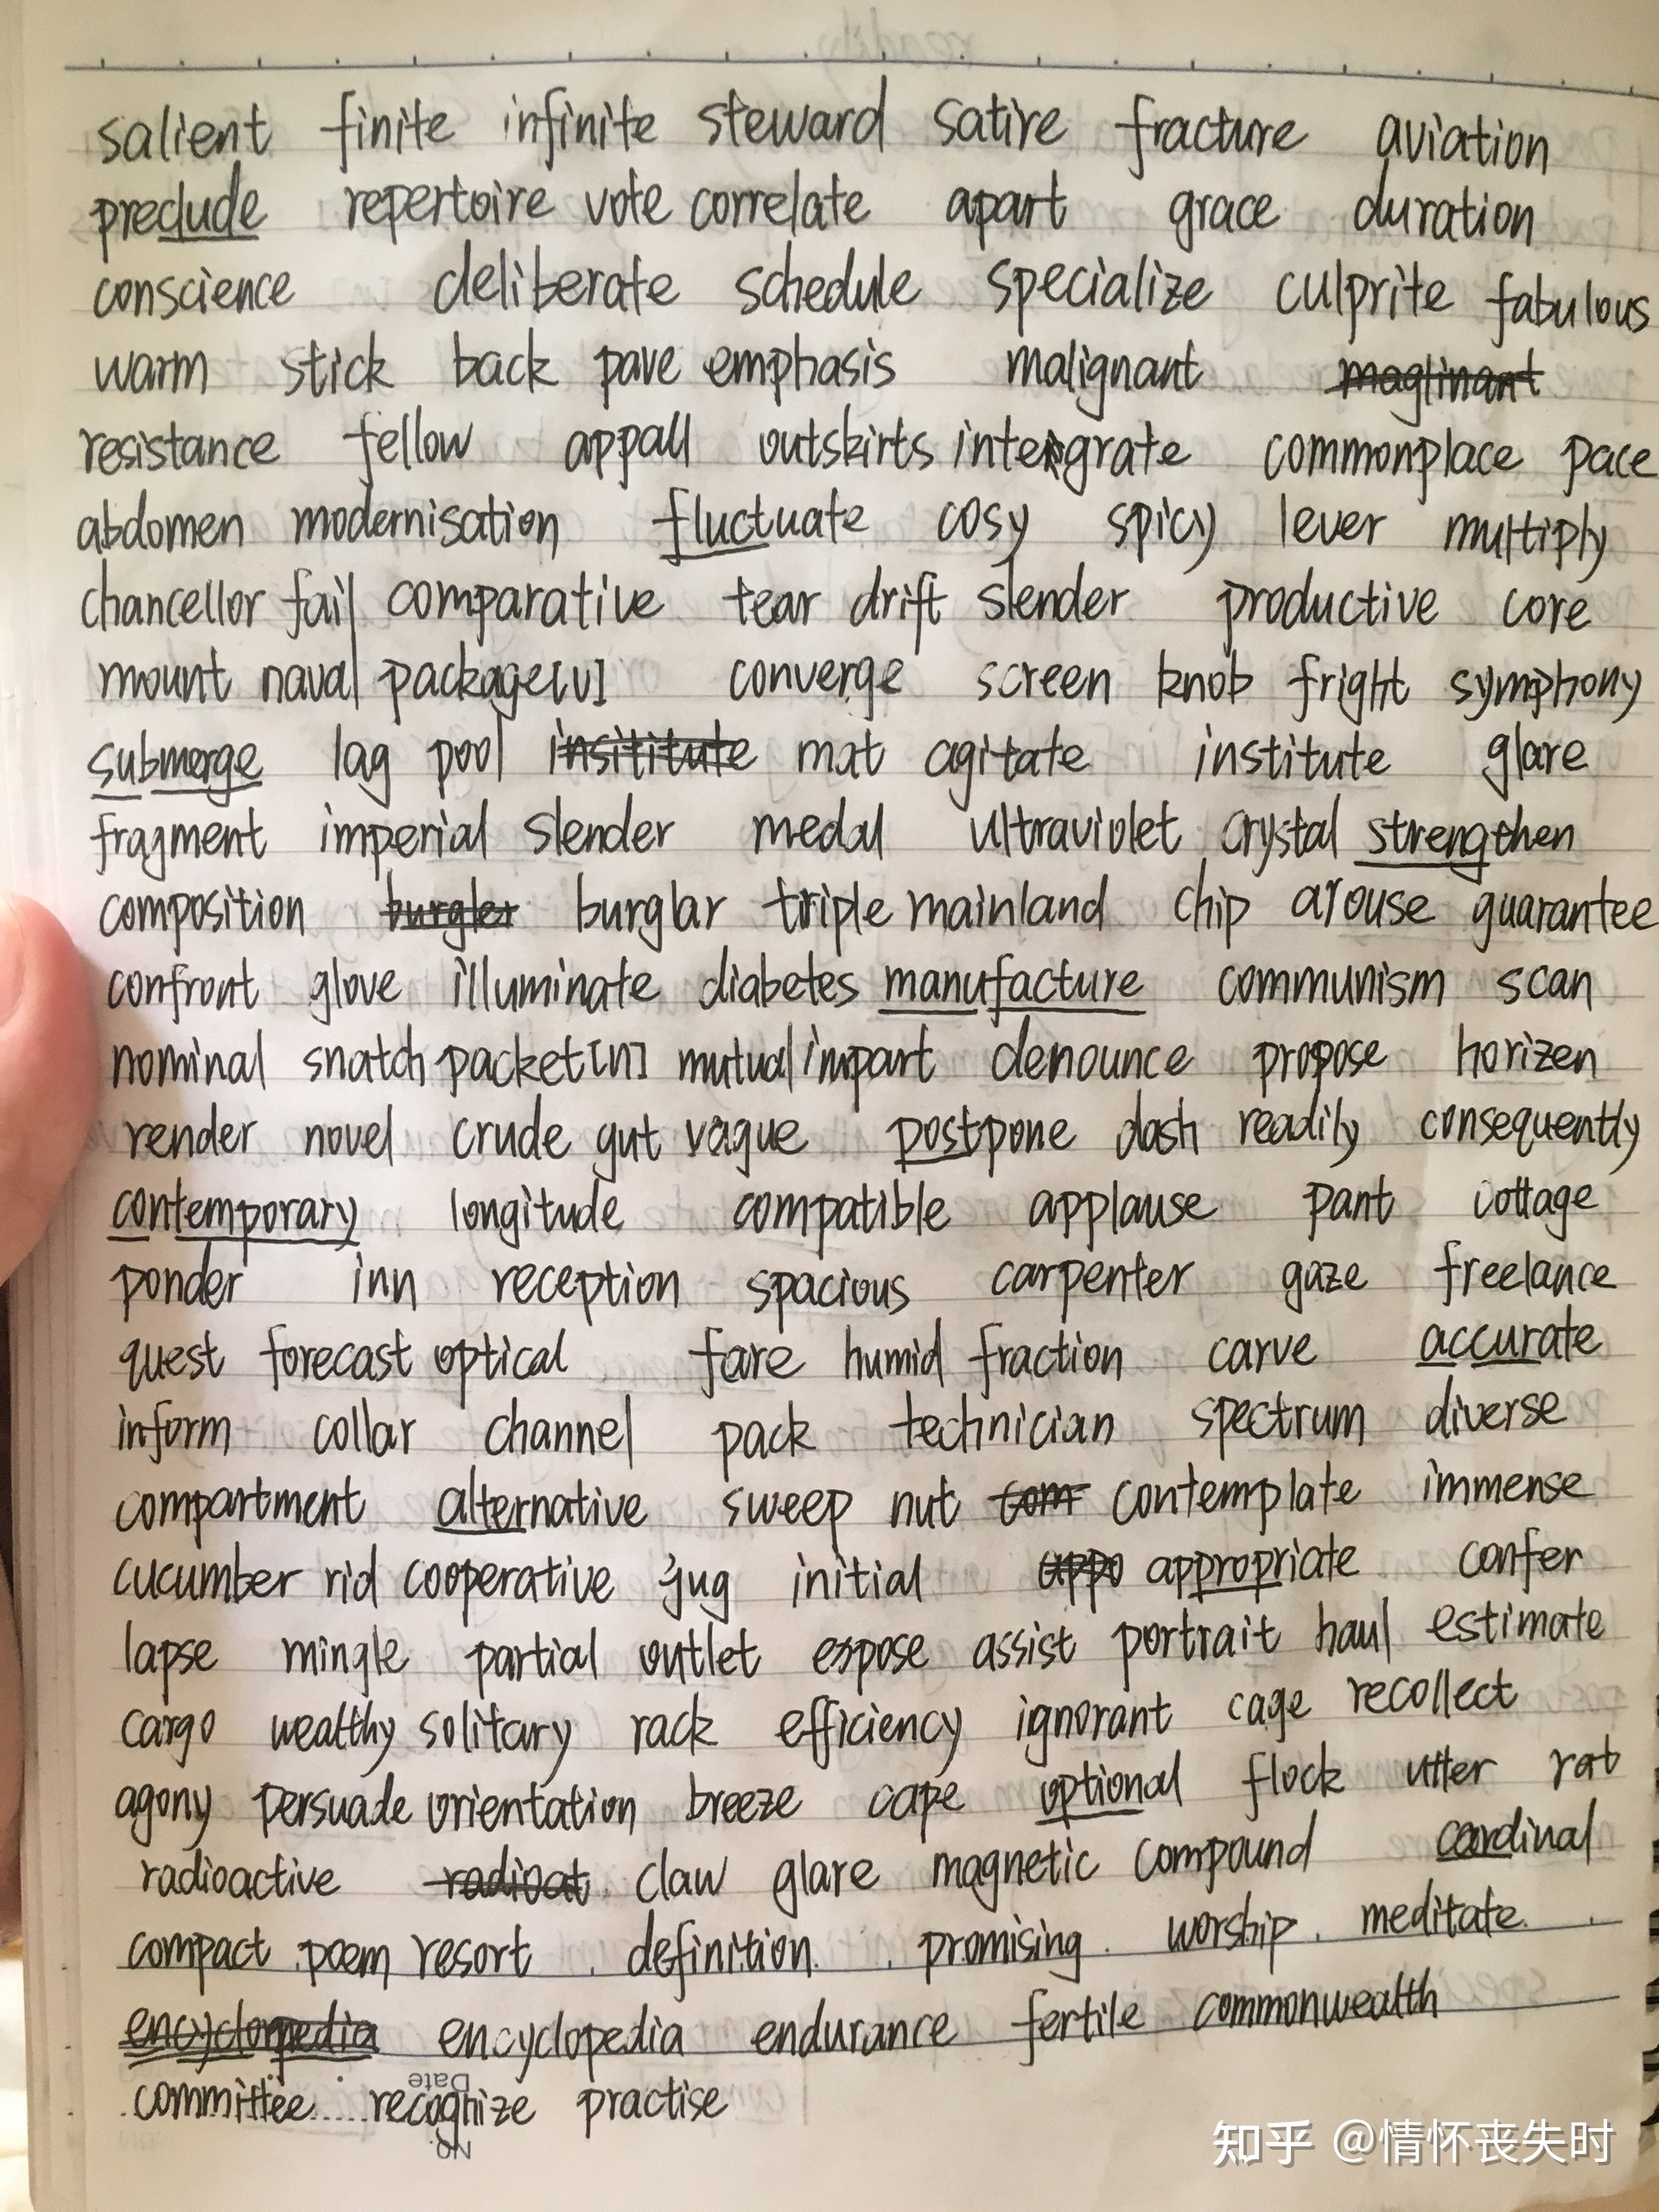 salient finite infinite steward satire fracture aviation
preclude repertoire vote correlate apart grace duration
conscience deliberate schedule specialize culprite fabulous
warm stick back pave emphasis malignant maglinant
resistance fellow appall outskirts intergrate commonplace pace
abdomen modernisation fluctuate cosy spicy lever multiply
chancellor fail comparative tear drift slender productive core
mount naval package[v] converge screen knob fright symphony
submerge lag pool insititute mat agitate institute glare
fragment imperial slender medal ultraviolet crystal strengthen
composition burgler burglar triple mainland chip arouse guarantee
confront glove illuminate diabetes manufacture communism scan
nominal snatch packet[n] mutual impart denounce propose horizen
render novel crude gut vague postpone dash readily consequently
contemporary longitude compatible applause pant cottage
ponder inn reception spacious carpenter gaze freelance
quest forecast optical fare humid fraction carve accurate
inform collar channel pack technician spectrum diverse
compartment alternative sweep nut com contemplate immense
cucumber rid cooperative jug initial appo appropriate confer
lapse mingle partial outlet expose assist portrait haul estimate
cargo wealthy solitary rack efficiency ignorant cage recollect
agony persuade orientation breeze cape optional flock utter rob
radioactive radioat claw glare magnetic compound cardinal
compact poem resort definition promising worship meditate
encyclopedia encyclopedia endurance fertile commonwealth
committee recognize practise
Date
No.
知乎 @情怀丧失时